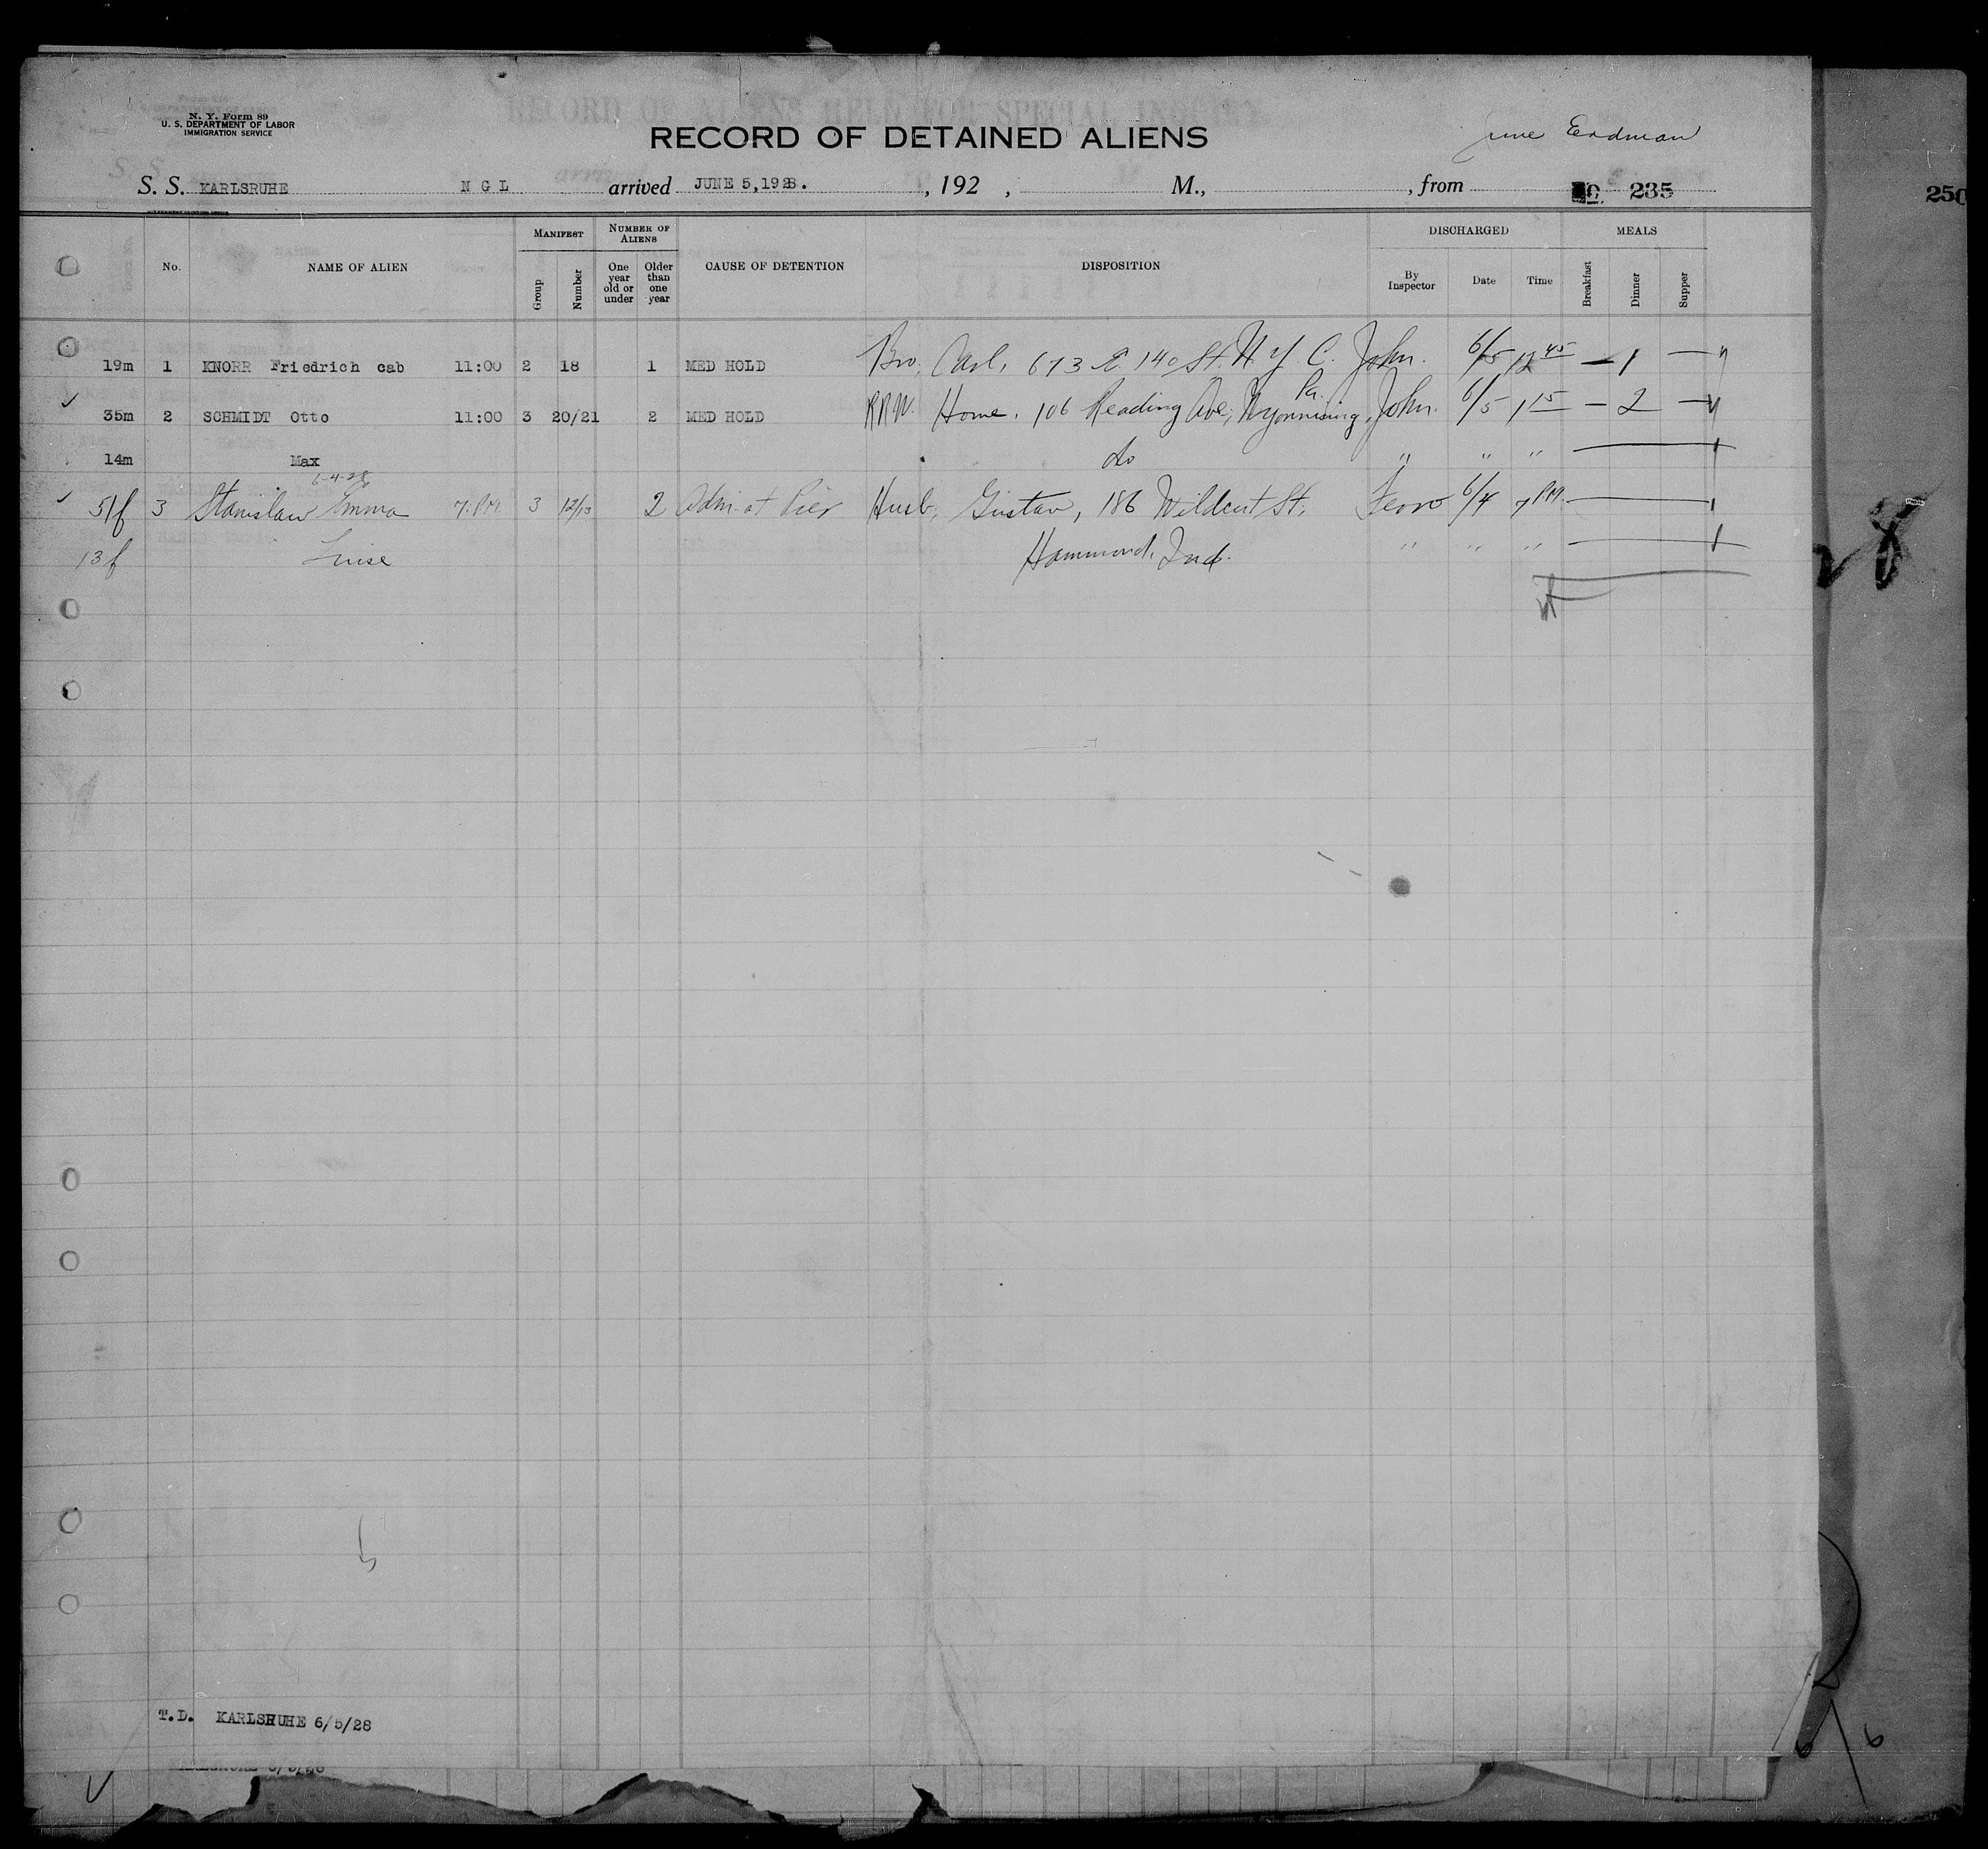 N. Y. Form 89
U. S. DEPARTMENT OF LABOR
IMMIGRATION SERVICE
RECORD OF ALIENS HELD FOR SPECIAL INQUIRY
RECORD OF DETAINED ALIENS
June Erdman
S. S. KARLSRUHE N G L arrived JUNE 5, 1928. , 192 , M., , from 235
250
No. NAME OF ALIEN MANIFEST Group Number NUMBER OF ALIENS One year old or under Older than one year CAUSE OF DETENTION DISPOSITION DISCHARGED By Inspector Date Time MEALS Breakfast Dinner Supper
19m 1 KNORR Friedrich cab 11:00 2 18 1 MED HOLD Bro, Carl, 673 E. 140 St. N. Y. C. John. 6/5 12 45 — 1 —
35m 2 SCHMIDT Otto 11:00 3 20/21 2 MED HOLD Home, 106 Reading Ave, Wyomissing, Pa. John. 6/5 1 15 — 2 —
14m Max do " " "
6-4-28
51f 3 Stanislaw Emma 7. P.M. 3 12/13 2 Adm. at Pier Husb, Gustav, 186 Wildcut St, 6/4 7 P.M.
13f Luise Hammond, Ind. " " "
28
T.D. KARLSRUHE 6/5/28
KARLSRUHE 6/5/28
6